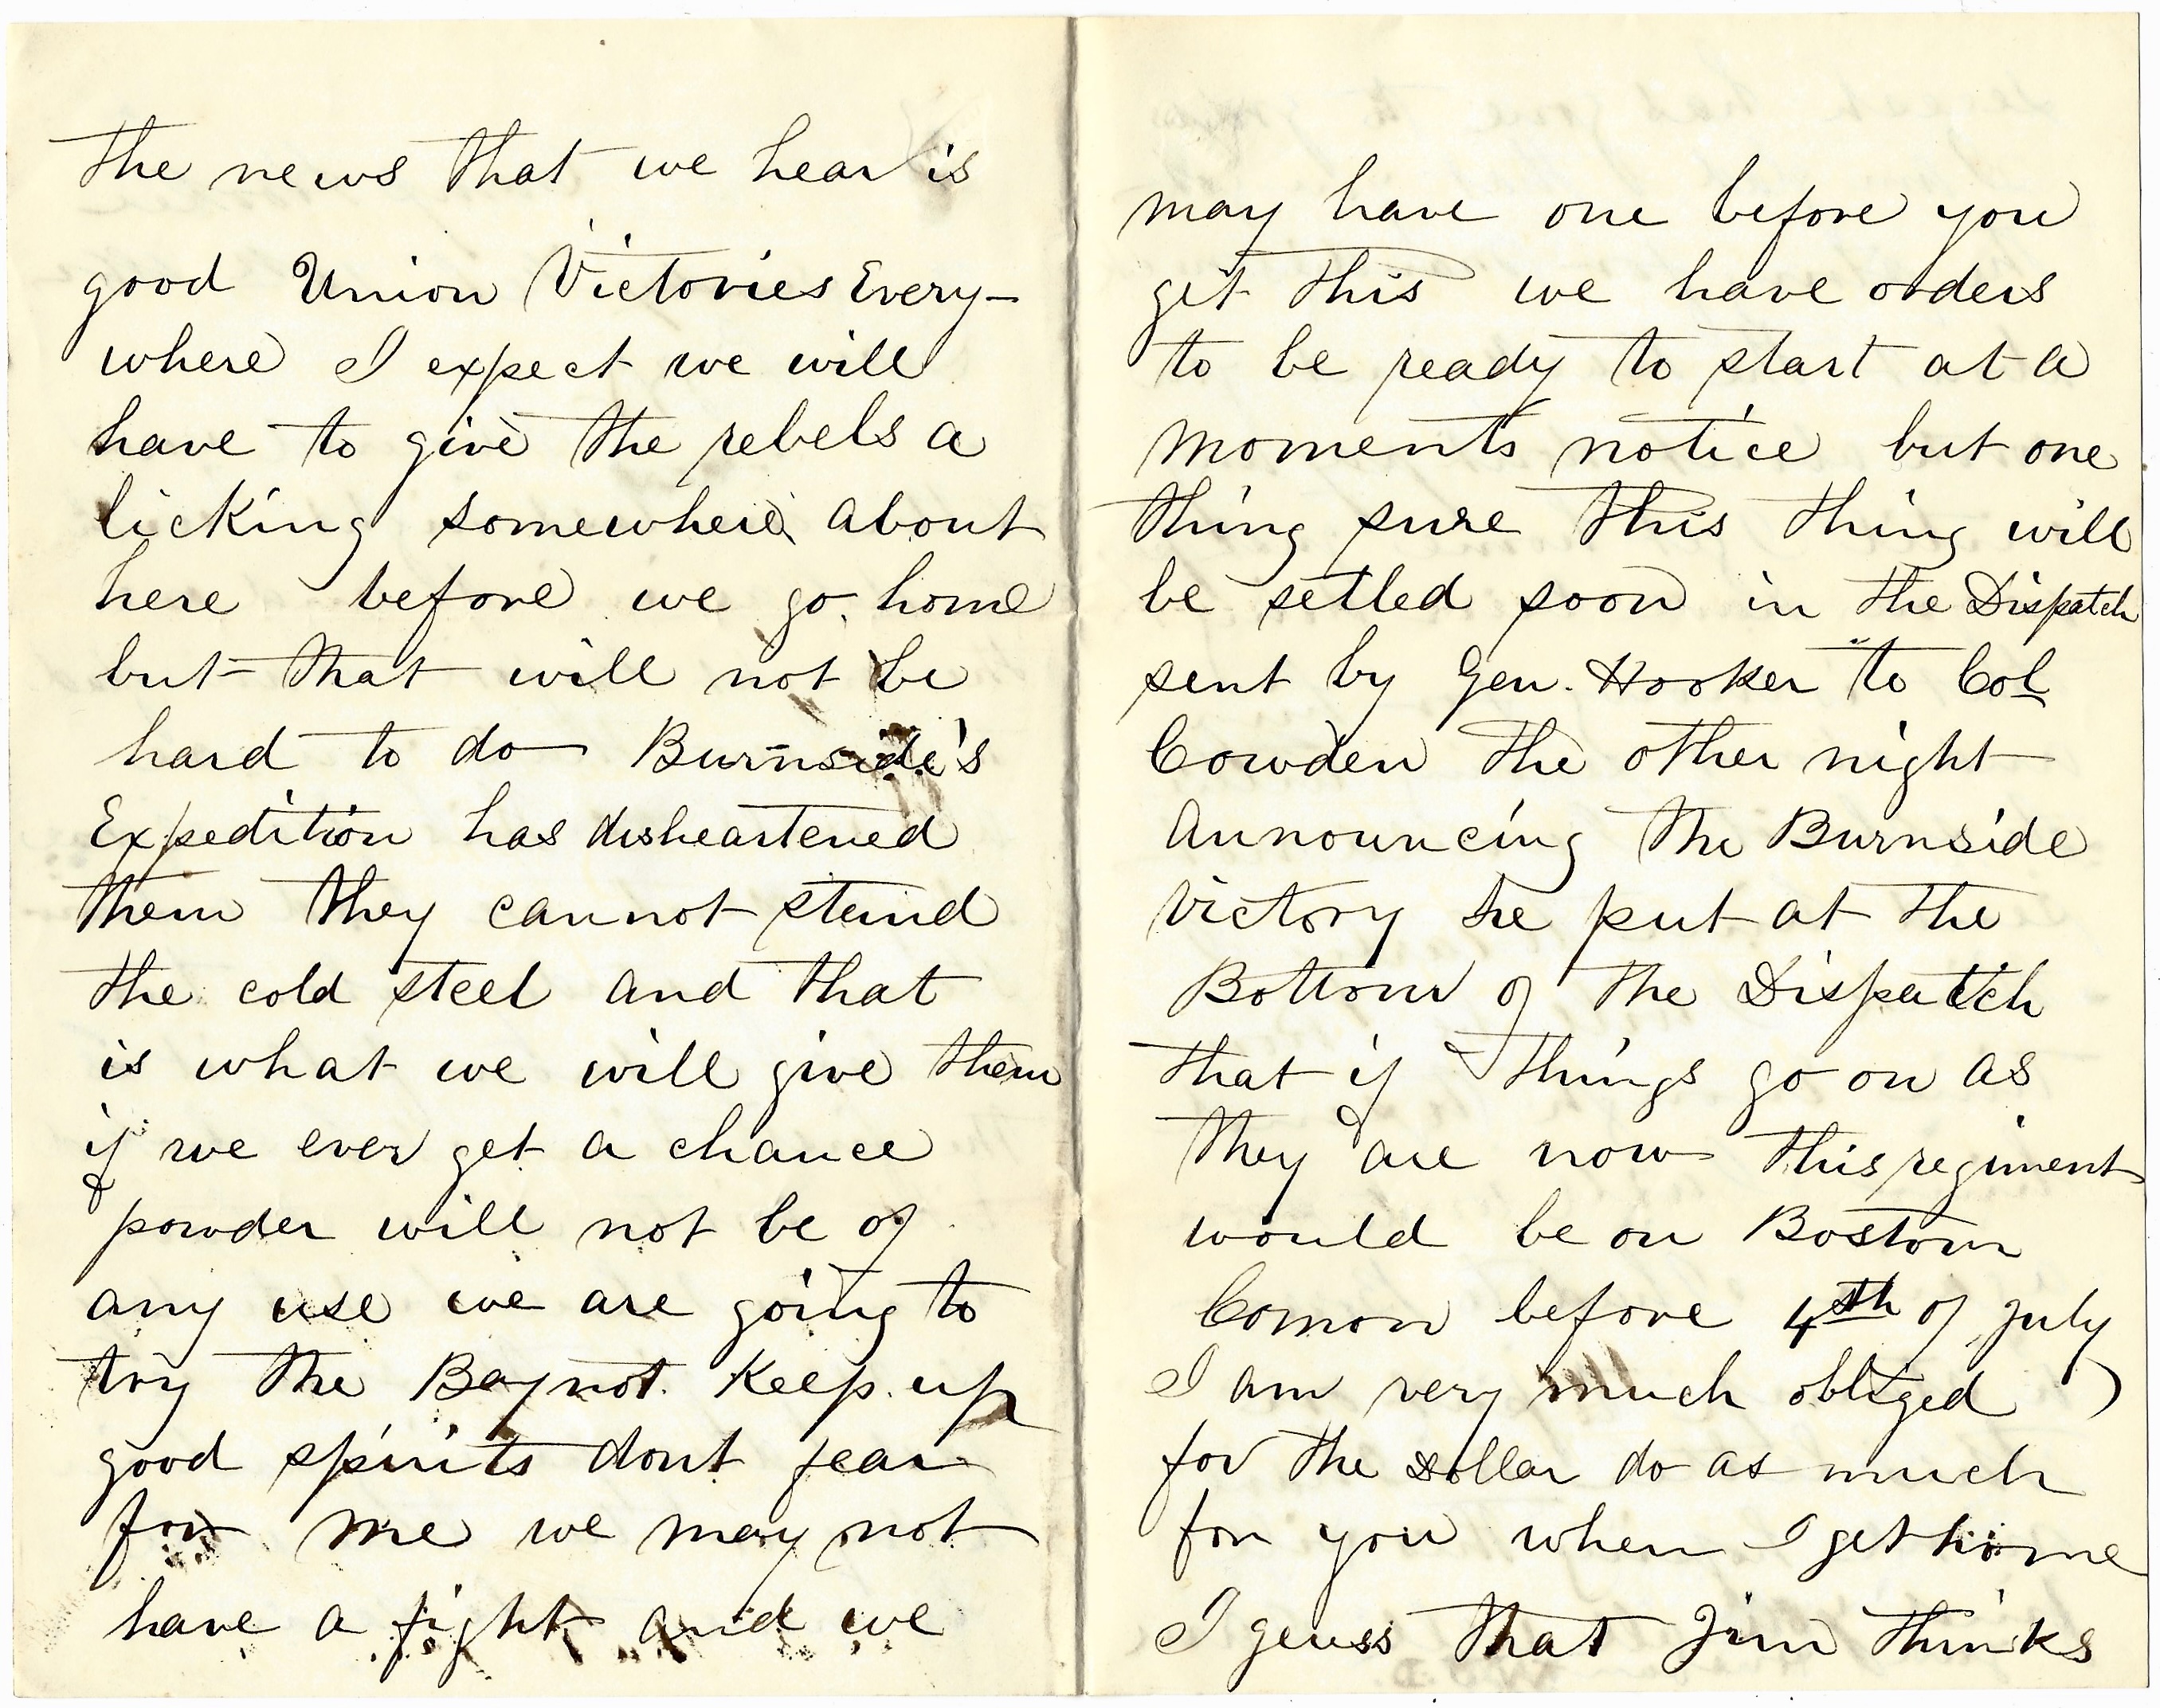 the news that we hear is
good Union Victories Every-
where I expect we will
have to give the rebels a
licking somewhere about
here before we go home
but that will not be
hard to do Burnside's
Expedition has disheartened
them they cannot stand
the cold steel and that
is what we will give them
if we ever get a chance
powder will not be of
any use we are going to
try the Baynot. Keep up
good spirits dont fear
for me we may not
have a fight and we
may have one before you
get this we have orders
to be ready to start at a
moments notice but one
thing sure this thing will
be setled soon in the Dispatch
sent by Gen. Hooker to Col
Cowden the other night
announcing the Burnside
Victory he put at the
Bottom of the Dispatch
that if things go on as
they are now this regiment
would be on Boston
Comon before 4th of July
I am very much obliged
for the Dollar do as much
for you when I get home
I geuss that Jim thinks